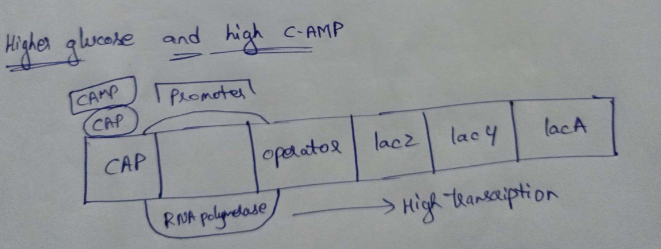 Higher glucose and high C-AMP
CAMP
Promoter
CAP
CAP
operator
lacz
lacy
lacA
RNA polymerase
High transcription